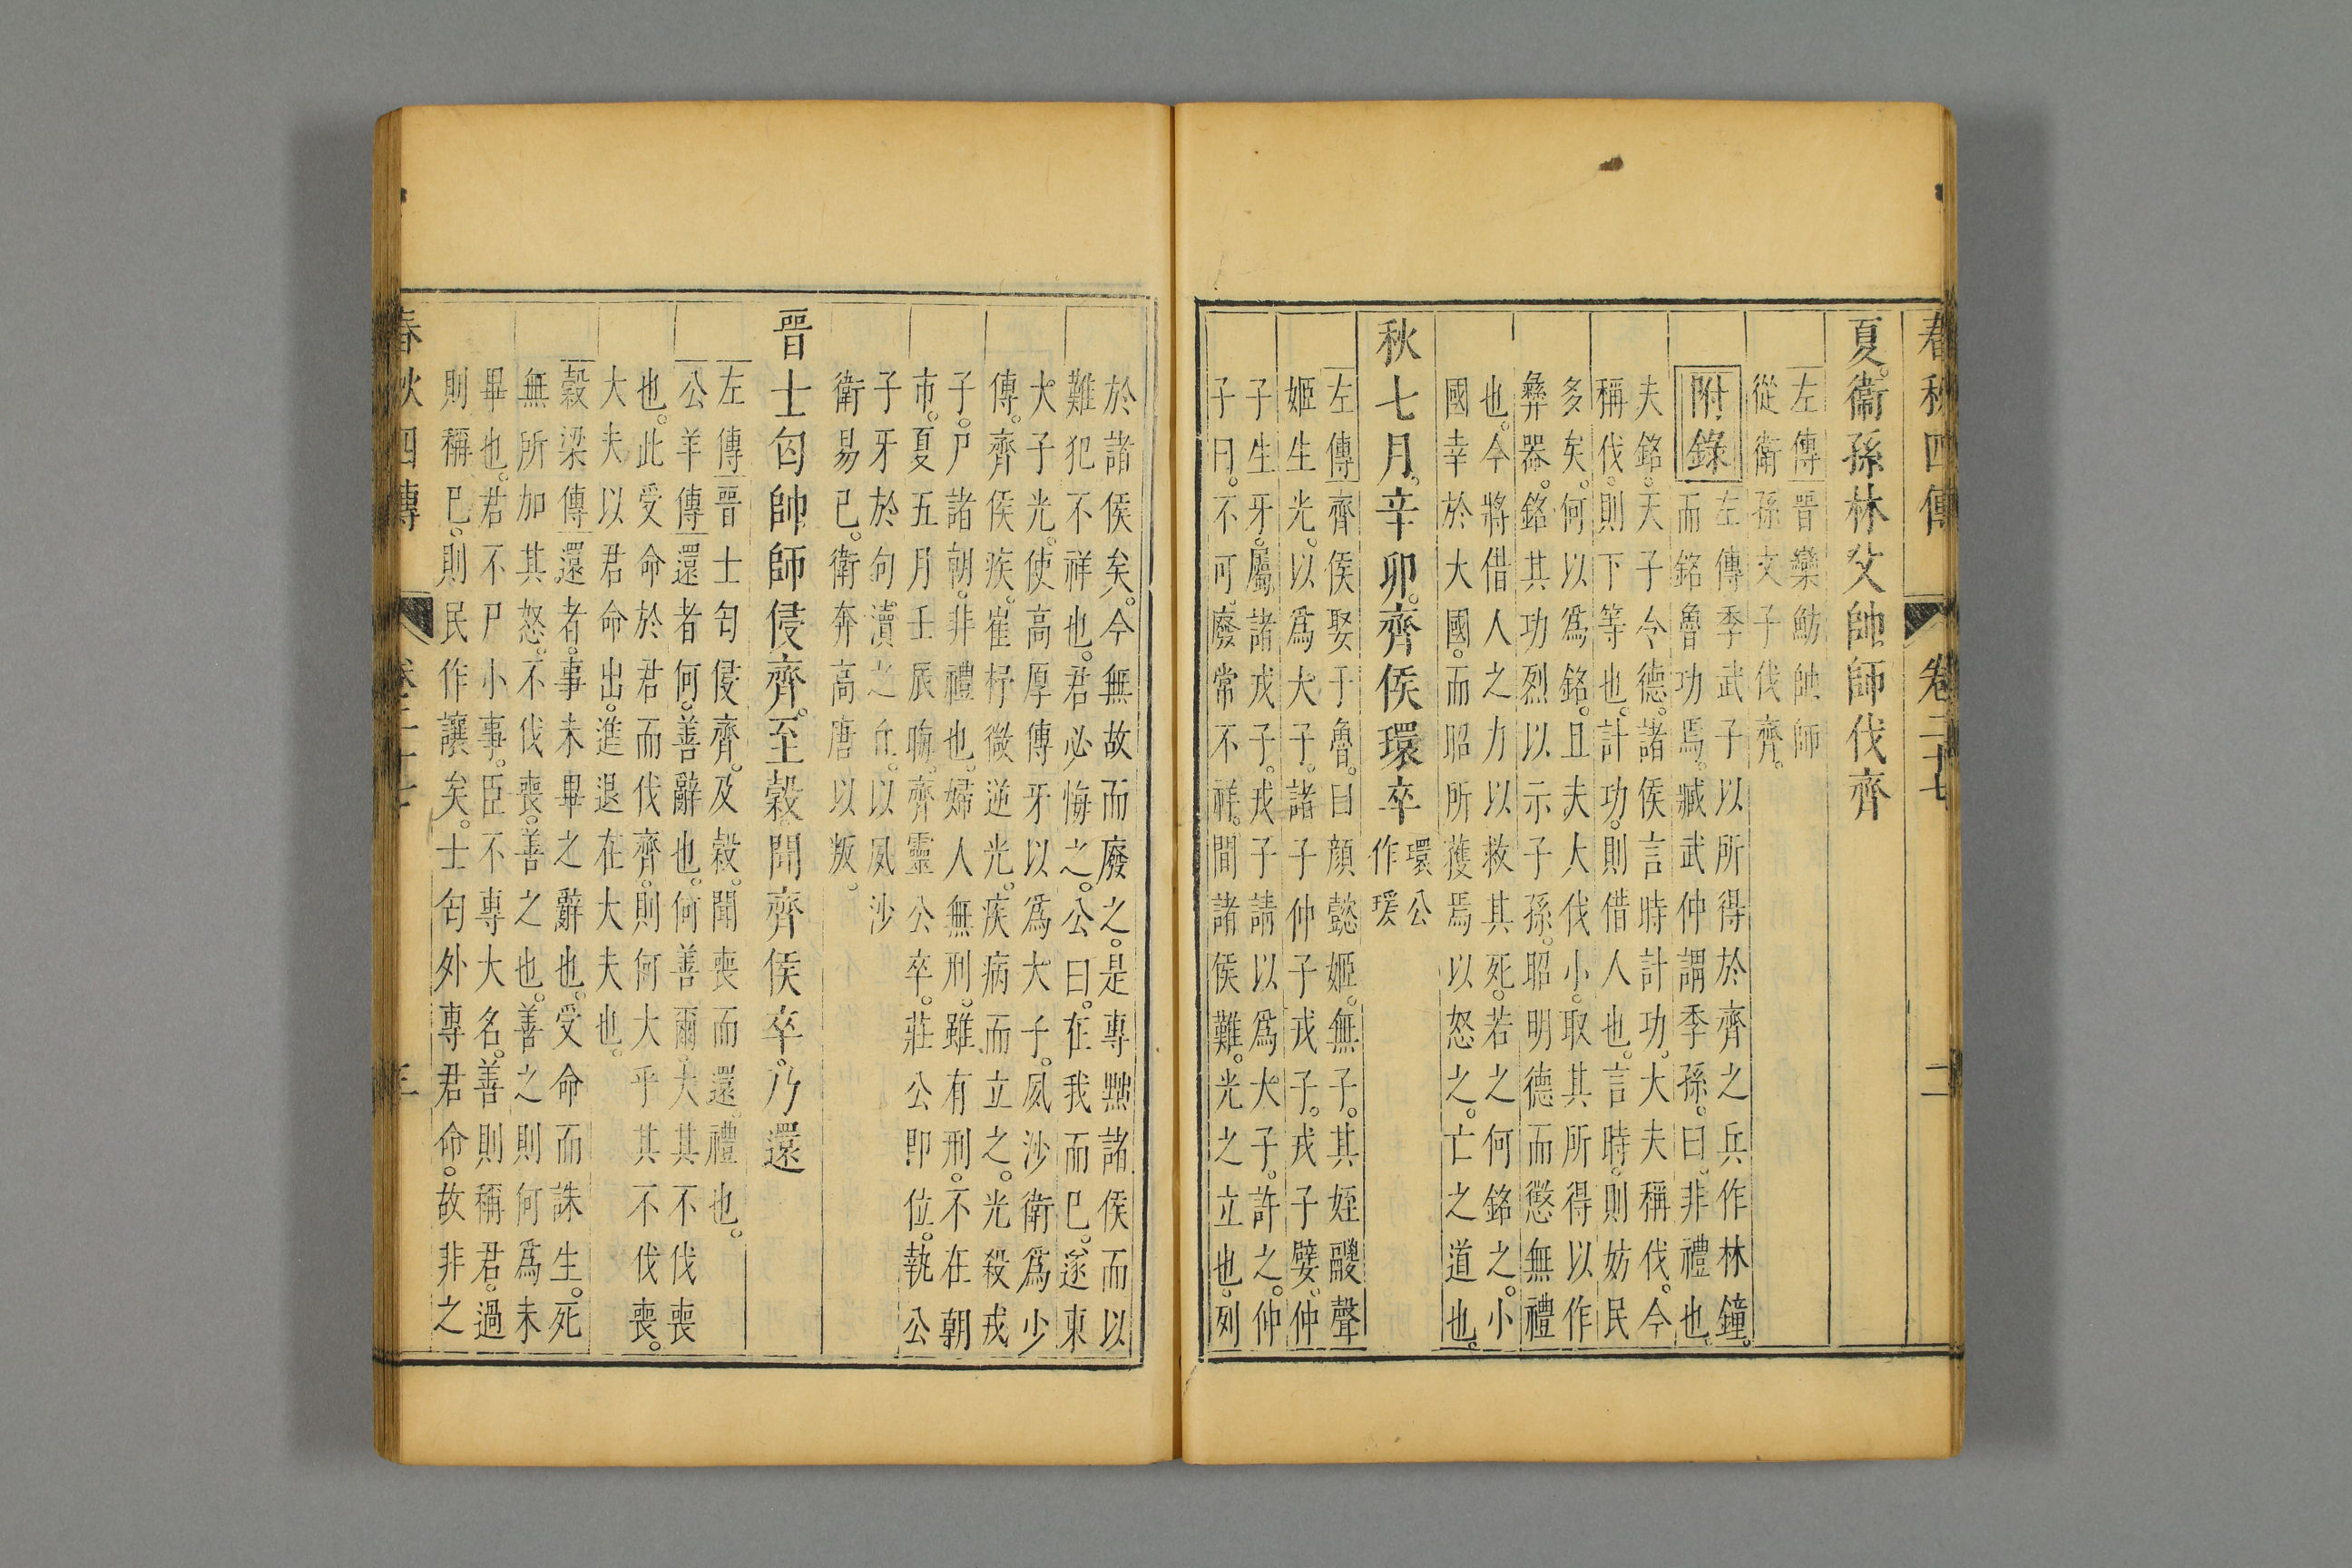 春秋四傳 卷二十七 二
夏。衞孫林父帥師伐齊
左傳晉欒魴帥師
從衞孫文子伐齊。
附錄
左傳季武子以所得於齊之兵作林鐘。
而銘魯功焉。臧武仲謂季孫。曰。非禮也。
夫銘。天子令德。諸侯言時計功。大夫稱伐。今
稱伐。則下等也。計功。則借人也。言時。則妨民
多矣。何以爲銘。且夫大伐小。取其所得以作
彝器。銘其功烈以示子孫。昭明德而懲無禮
也。今將借人之力以救其死。若之何銘之。小
國幸於大國。而昭所獲焉以怒之。亡之道也。
秋七月。辛卯。齊侯環卒
環公
作瑗
左傳齊侯娶于魯。曰顏懿姬。無子。其姪鬷聲
姬生光。以爲大子。諸子仲子戎子。戎子嬖。仲
子生牙。屬諸戎子。戎子請以爲大子。許之。仲
子曰。不可。廢常不祥。間諸侯難。光之立也。列
於諸侯矣。今無故而廢之。是專黜諸侯而以
難犯不祥也。君必悔之。公曰。在我而已。遂東
大子光。使高厚傅牙以爲大子。夙沙衞爲少
傅。齊侯疾。崔杼微逆光。疾病而立之。光殺戎
子。尸諸朝。非禮也。婦人無刑。雖有刑。不在朝
市。夏五月壬辰晦。齊靈公卒。莊公即位。執公
子牙於句瀆之丘。以夙沙
衞易己。衞奔高唐以叛。
晉士匄帥師侵齊。至穀。聞齊侯卒。乃還
左傳晉士匄侵齊。及穀。聞喪而還。禮也。
公羊傳還者何。善辭也。何善爾。大其不伐喪
也。此受命於君而伐齊。則何大乎其不伐喪。
大夫以君命出。進退在大夫也。
穀梁傳還者。事未畢之辭也。受命而誅生。死
無所加其怒。不伐喪。善之也。善之則何爲未
畢也。君不尸小事。臣不專大名。善則稱君。過
則稱已。則民作讓矣。士匄外專君命。故非之
春秋四傳 卷二十七 三